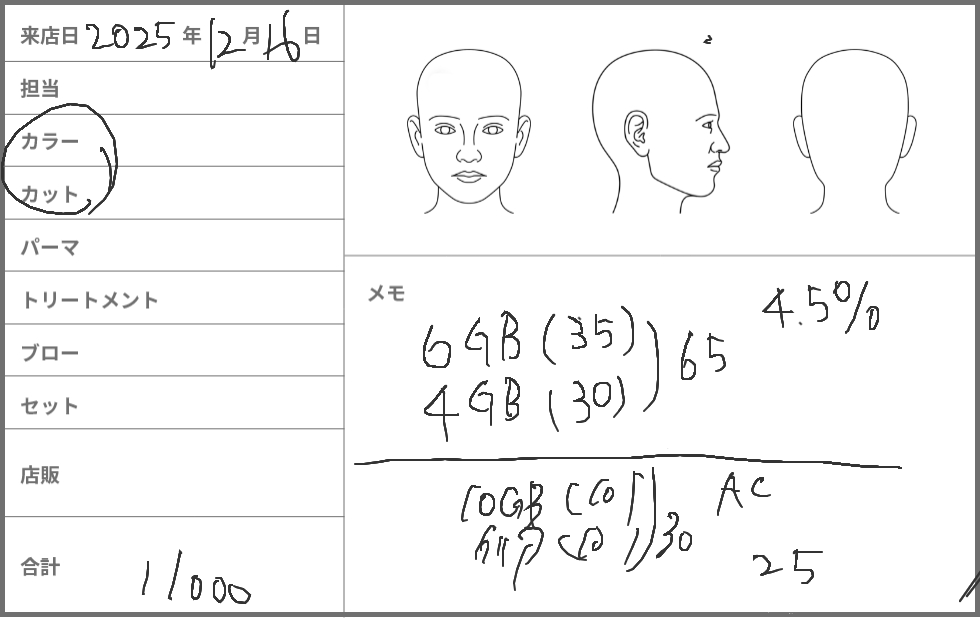 来店日 2025 年 12 月 16 日
担当
カラー
カット
パーマ
トリートメント
ブロー
セット
店販
合計 11000
メモ
4.5%
6GB (35)
65
4GB (30)
10GB
AC
30
25